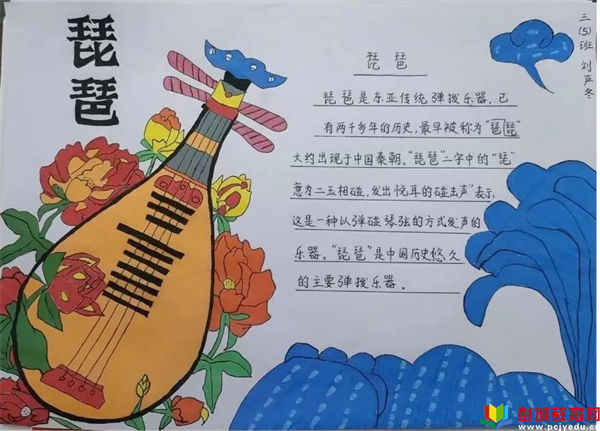 琵琶
琵琶
琵琶是东亚传统弹拨乐器,已
有两千多年的历史,最早被称为"琶琵"
大约出现于中国秦朝,"琵琶"二字中的"琵"
意为二五相碰,发出悦耳的碰击声"表示,
这是一种以弹碰琴弦的方式发声的
乐器。"琵琶"是中国历史悠久
的主要弹拨乐器。
三(5)班
彭城教育网